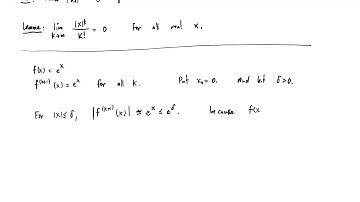 Lemma: lim k→∞ |x|^k / k! = 0 for all real x.
f(x) = e^x
f^(k+1) (x) = e^x for all k. Put x₀=0. And let δ>0.
For |x| ≤ δ, |f^(k+1) (x)| = e^x ≤ e^δ. because f(x